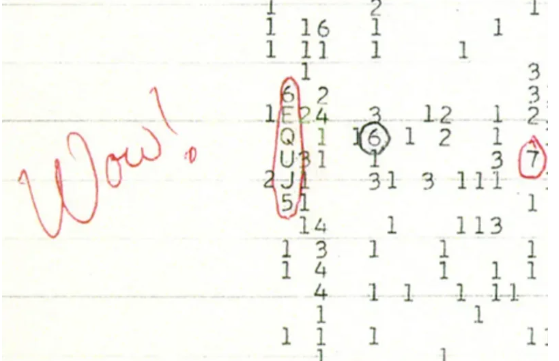 Wow!
1 2 1
1 16 1 1
1 11 1 1
1 3
6 2 3
1 E24 3 12 1 2
Q 1 16 1 2 1 1
U31 1 3 7
2J1 31 3 111
51 1
14 1 113
1 3 1 1 1
1 4 1 1 1
4 1 1 1 11
1 1
1 1 1 11
1 1